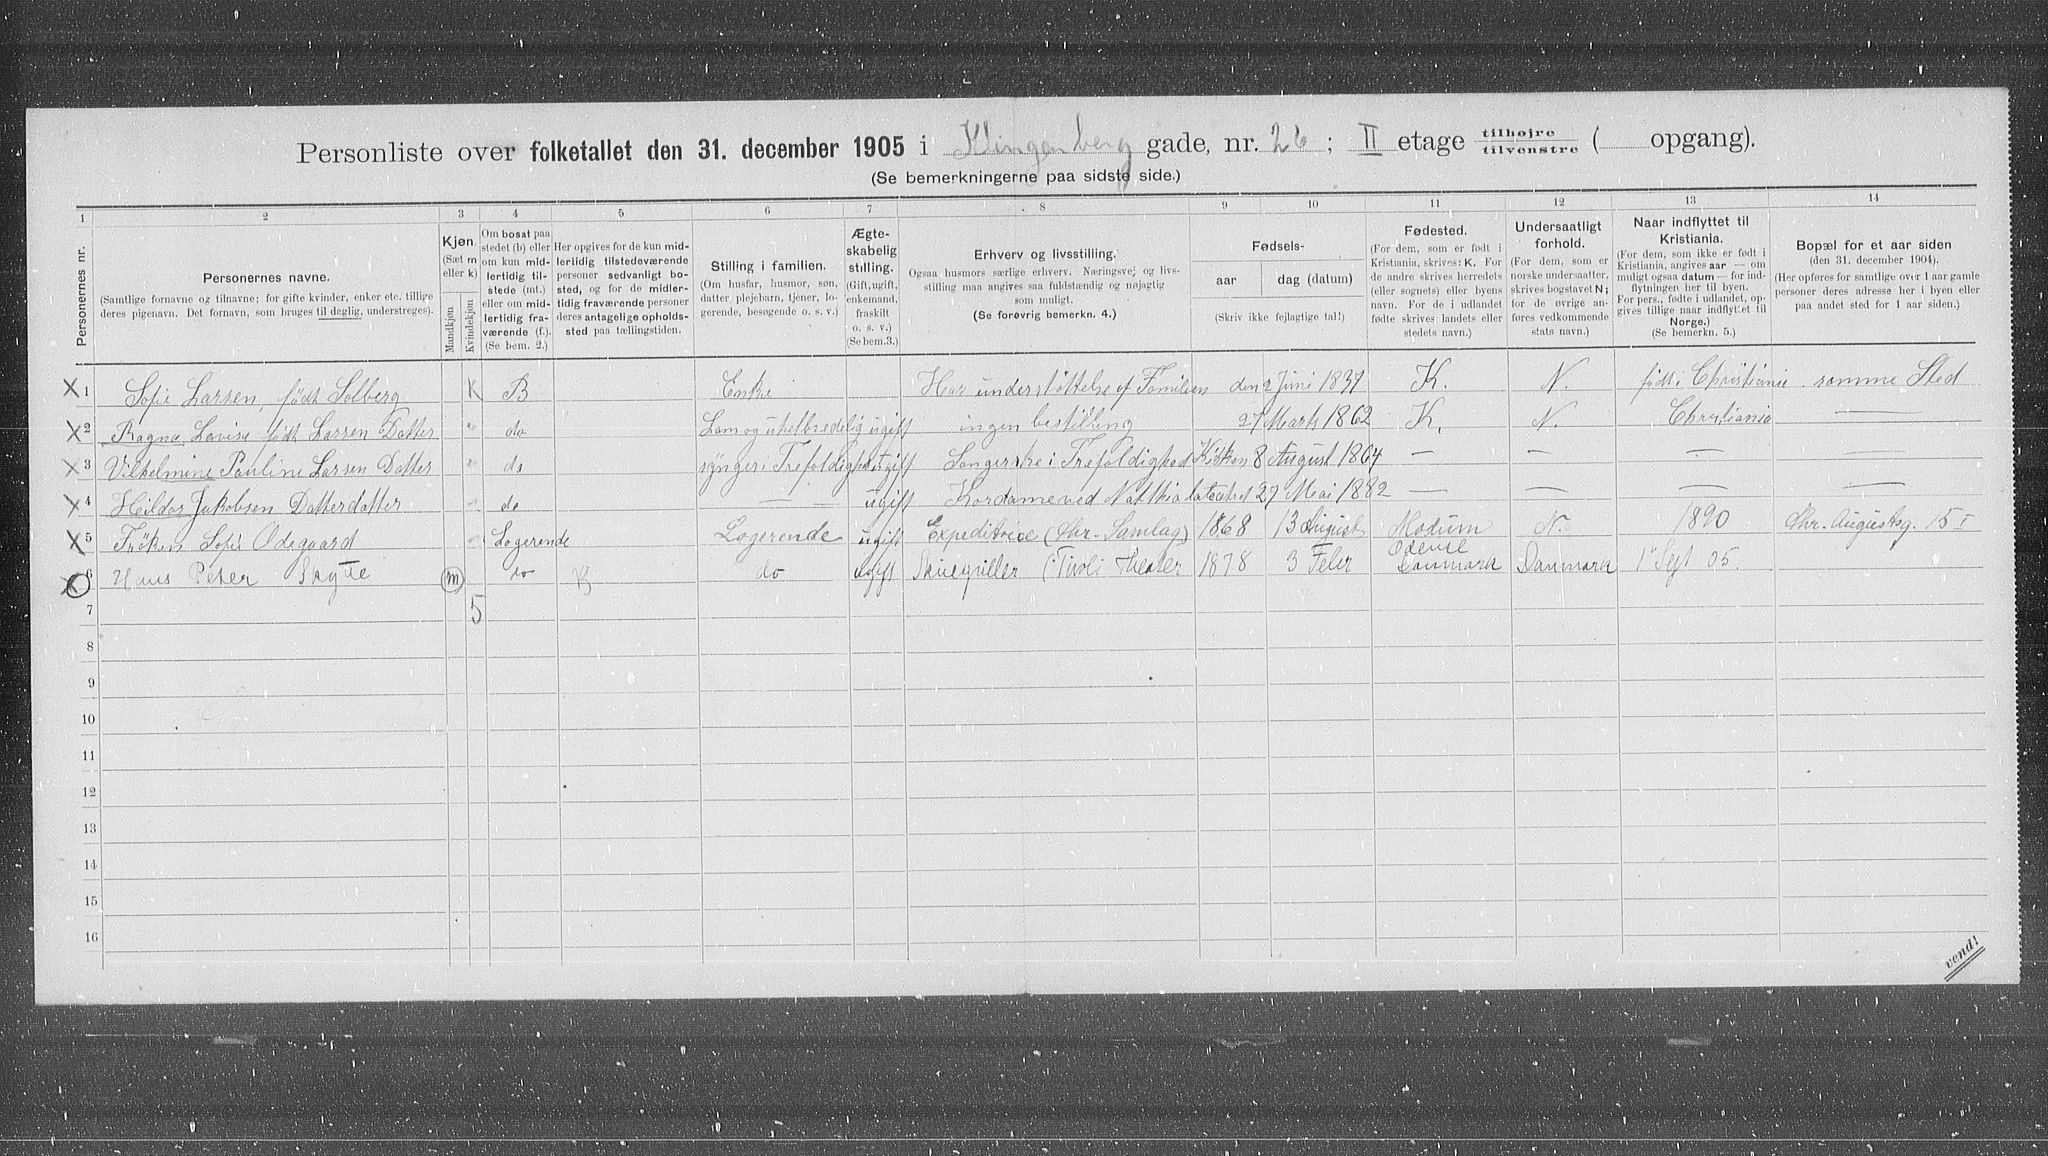 Personliste over folketallet den 31. december 1905 i Klingenberg gade, nr. 26 ; II etage tilhøjre tilvenstre ( opgang).
(Se bemerkningerne paa sidste side.)
1 2 3 4 5 6 7 8 9 10 11 12 13 14
Personernes nr.
Personernes navne.
(Samtlige fornavne og tilnavne; for gifte kvinder, enker etc. tillige
deres pigenavn. Det fornavn, som bruges til deglig, understreges).
Kjøn.
(Sæt m
eller k)
Mandkjøn
Kvindekjøn
Om bosat paa
stedet (b) eller
om kun mid-
lertidig til-
stede (mt.)
eller om mid-
lertidig fra-
værende (f.).
(Se bem. 2.)
Her opgives for de kun mid-
lertidig tilstedeværende
personer sedvanligt bo-
sted, og for de midler-
tidig fraværende personer
deres antagelige opholds-
sted paa tællingstiden.
Stilling i familien.
(Om husfar, husmor, søn,
datter, plejebarn, tjener, lo-
gerende, besøgende o. s. v.)
Ægte-
skabelig
stilling.
(Gift, ugift,
enkemand,
fraskilt
o. s. v.)
(Se bem.3.)
Erhverv og livsstilling.
Ogsaa husmors særlige erhverv. Næringsvej og livs-
stilling maa angives saa fuldstændig og nøjagtig
som muligt.
(Se forøvrig bemerkn. 4.)
Fødsels-
aar dag (datum)
(Skriv ikke fejlagtige tal!)
Fødested.
(For dem, som er født i
Kristiania, skrives: K. For
de andre skrives herredets
(eller sognets) eller byens
navn. For de i udlandet
fødte skrives landets eller
stedets navn.)
Undersaatligt
forhold.
(For dem, som er
norske undersaatter,
skrives bogstavet N;
for de øvrige an-
føres vedkommende
stats navn.)
Naar indflyttet til
Kristiania.
(For dem, som ikke er født i
Kristiania, angives aar — om
muligt ogsaa datum — for ind-
flytningen her til byen.
For pers., fødte i udlandet, op-
gives tillige naar indflyttet til
Norge.)
(Se bemerkn. 5.)
Bopæl for et aar siden
(den 31. december 1904).
(Her opføres for samtlige over 1 aar gamle
personer deres adresse her i byen eller
paa andet sted for 1 aar siden.)
X 1 Sofie Larsen, født Solberg K B Enke Har understøttelse af Familien den 2 Juni 1837 K. N. født i Christiania samme Sted
X 2 Ragna Lovise født Larsen Datter " do Lam og uhelbredelig ugift ingen bestilling 27 Marts 1862 K. N. Christiania —
X 3 Vilhelmine Pauline Larsen Datter " do synger i Trefoldighed ugift Sangerske i Trefoldighed Kirken 8 August 1864 — — — —
X 4 Hilda Jakobsen Datterdatter " do — — ugift Kordame ved Nationalteatret 27 Mai 1882 — — — —
X 5 Frøken Sofie Odegaard " Logerende Logerende ugift Expeditrice (Chr. Samlag) 1868 13 August Modum N. 1890 Chr. Augustsg. 15 I
X 6 Hans Peter Skytte m do B do ugift Skuespiller (Tivoli Theater 1878 3 Febr Odense Danmark Danmark 1' Sept 05.
7 5
8
9
10
11
12
13
14
15
16
vend!